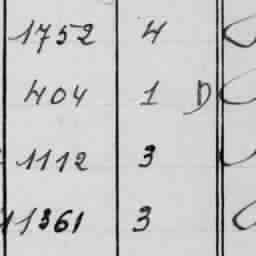 1752 4
404 1 D
1112 3
11361 3